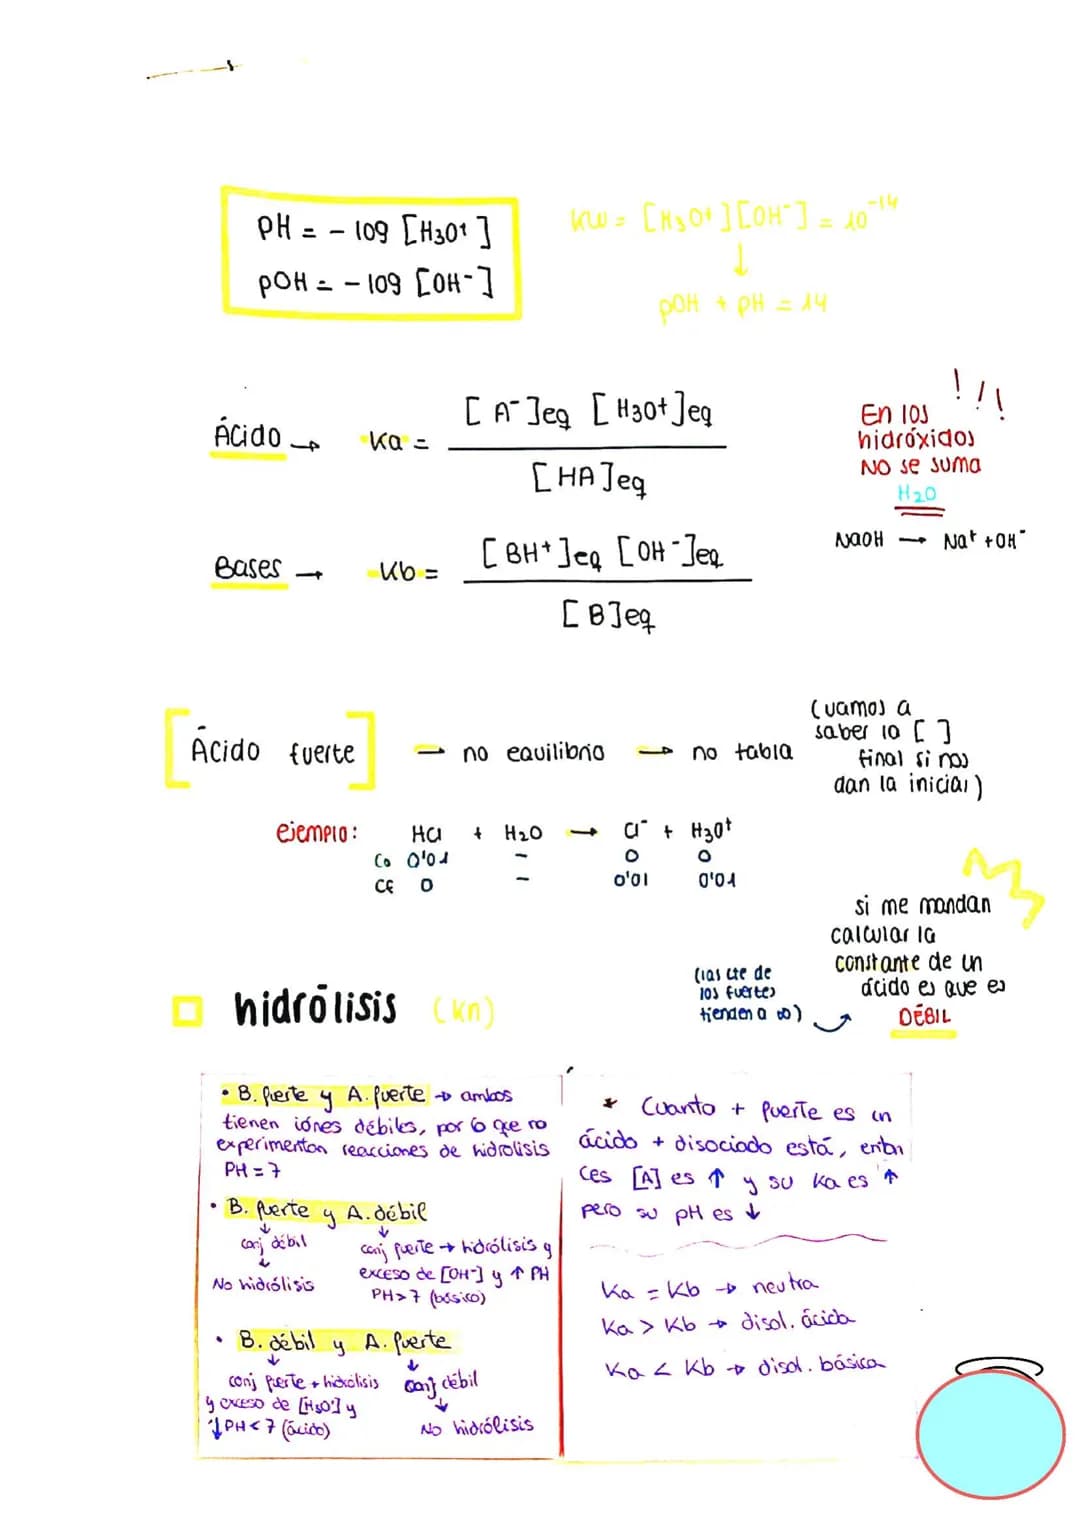 PH = - log [H3O+]
pOH = - log [OH-]
Kw = [H3O+][OH-] = 10^-14
↓
pOH + pH = 14
Ácido → Ka = [A-]eq [H3O+]eq
[HA]eq
!!!
En los
hidróxidos
NO se suma
H2O
NaOH → Na+ + OH-
Bases → Kb = [BH+]eq [OH-]eq
[B]eq
[Ácido fuerte] → no equilibrio → no tabla
(vamos a
saber la [ ]
final si nos
dan la inicial)
ejemplo: HCl + H2O → Cl- + H3O+
Co 0'01 - 0 0
CF 0 - 0'01 0'01
si me mandan
calcular la
constante de un
ácido es que es
DÉBIL
(las cte de
los fuertes
tienden a ∞)
hidrólisis (Kh)
• B. fuerte y A. fuerte → ambos
tienen iónes débiles, por lo que no
experimentan reacciones de hidrolisis
PH = 7
• B. fuerte y A. débil
↓ ↓
conj débil
↓
No hidrólisis
conj fuerte → hidrólisis y
exceso de [OH-] y ↑ PH
PH>7 (básico)
• B. débil y A. fuerte
↓ ↓
conj fuerte → hidrólisis
y exceso de [H3O+] y
↓PH<7 (ácido)
conj débil
↓
No hidrólisis
* Cuanto + fuerte es un
ácido + disociado está, enton
ces [A] es ↑ y su Ka es ↑
pero su pH es ↓
Ka = Kb → neutra
Ka > Kb → disol. ácida
Ka < Kb → disol. básica